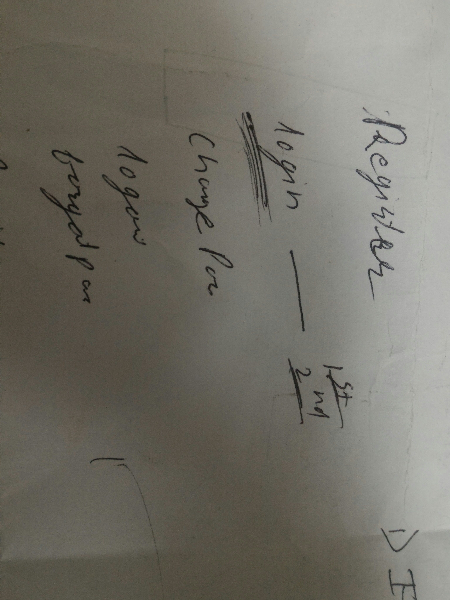 Register
login — 1st
2nd
Change Pas
logou
forgot pas
1) I